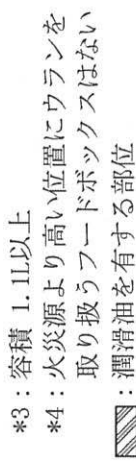 *3：容積 1.1L以上
*4：火災源より高い位置にウランを
取り扱うフードボックスはない
：潤滑油を有する部位